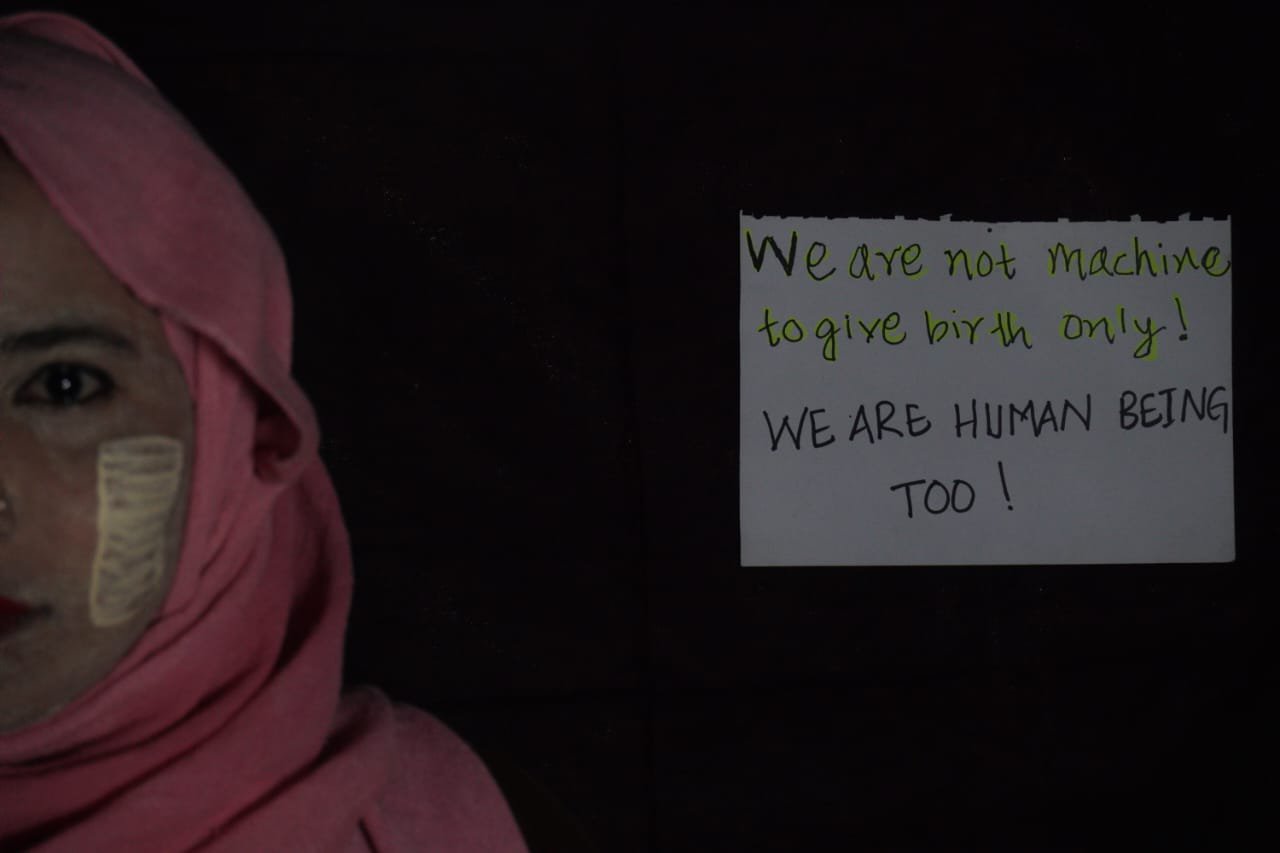 We are not machine
to give birth only!
WE ARE HUMAN BEING
TOO!